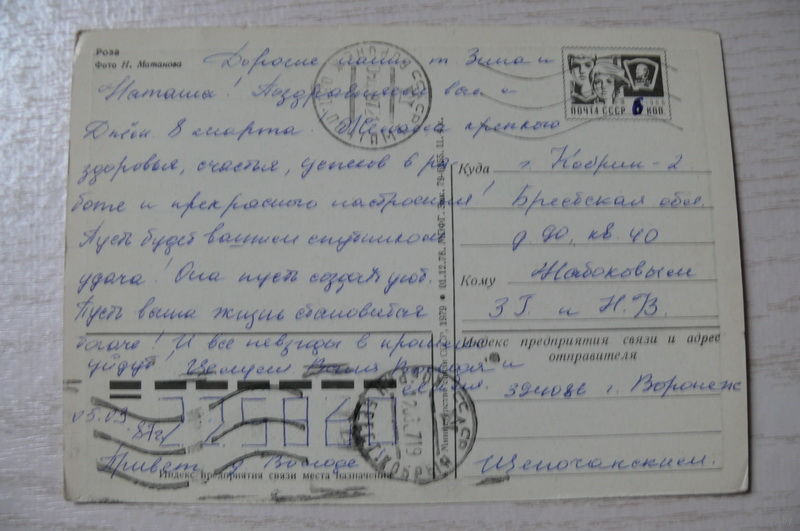 Роза
Фото Н. Матанова
Дорогие наши т. Зина и
Наташа! Поздравляем вас с
Днём 8 марта. Желаем крепкого
здоровья, счастья, успехов в ра-
боте и прекрасного настроения!
Пусть будет вашим спутником
удача! Она пусть создаст уют.
Пусть ваша жизнь становится
богаче! И все невзгоды в прошлое
уйдут. Целуем
семья.
05.03
Привет д. Володе
Индекс предприятия связи места назначения
ПОЧТА СССР 6 КОП.
Куда г. Кобрин-2
Брестская обл.
кв. 40
Кому Жабоковым
З.Г. и Н.В.
Индекс предприятия связи и адрес
отправителя
г. Воронеж
Щепочанским.
Министерство связи СССР, 1979
01.12.78.